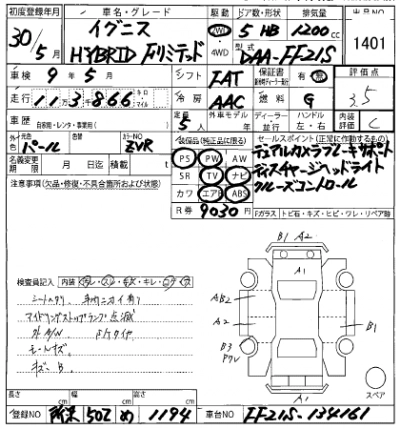 初度登録年月 車名・グレード 駆動 ドア数・形状 排気量 出品NO
30年5月 イグニス HYBRID Fリミテッド 2WD 4WD 5 HB 1200cc 1401
型式 DAA-FF21S
車検 9年5月 シフト FAT 保証書 有 無 評価点
走行 11万3866 キロ マイル 冷房 AAC 燃料 G 3.5
車歴 自家用・レンタ・事業用( ) 定員 5人 外車モデル 年 ディーラー 並行 ハンドル 左・右 内装評価 C
外色 元色 パール 色替 カラーNO ZVR
装備品(純正品に限る) セールスポイント(正常に作動するもの)
名義変更期限 月 日迄 積載量 t
PS PW AW デュアルカメラブレーキサポート
SR TV ナビ ディスチャージヘッドライト
カワ エアB ABS クルーズコントロール
注意事項(欠品・修復・不具合箇所および状態)
R券 9030円 Fガラス トビ石・キズ・ヒビ・ワレ・リペア跡
B1 A2
A1
検査員記入
AB2
A2
B1
B3
アイドリングストップランプ点滅
外A/W
モールキズ
キズ B
スペア
A1
長さ cm 幅 cm 高さ cm
登録NO 所沢 502 め 1194 車台NO FF21S-134161